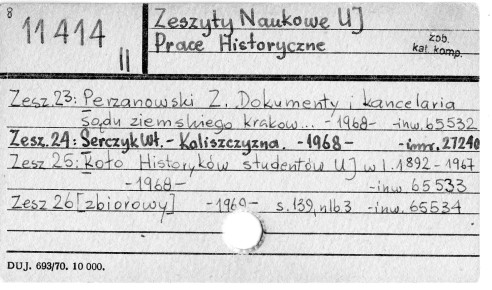 8
11414
II
Zeszyty Naukowe UJ
Prace Historyczne
zob.
kat. komp.
Zesz. 23: Perzanowski Z. Dokumenty i kancelaria
sądu ziemskiego krakow... -1968- -inw. 65532
Zesz. 24: Serczyk Wł. - Koliszczyzna. -1968- -inw. 27240
Zesz 25: Koło Historyków studentów UJ w l. 1892-1967
-1968- -inw 65533
Zesz 26 [zbiorowy] -1969- s. 139, nlb 3 -inw. 65534
DUJ. 693/70. 10 000.